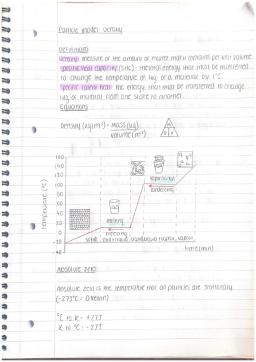 Particle model: Density
Definitions
Density: measure of the amount of matter that is contained per unit volume.
Specific heat capacity (SHC): thermal energy that must be transferred
to change the temperature of 1kg of a material by 1°C.
Specific latent heat: the energy that must be transferred to change
1kg of material from one state to another.
Equations
Density (kg/m³) = mass (kg)
volume (m³)
temperature (°C)
160
140
120
100
80
60
40
20
0
-20
-40
evaporating
condensing
melting
freezing
solid
liquid
vapour
time (min)
Absolute zero
Absolute zero is the temperature that all particles are stationary
(-273°C = 0 kelvin)
°C to K = +273
K to °C = -273